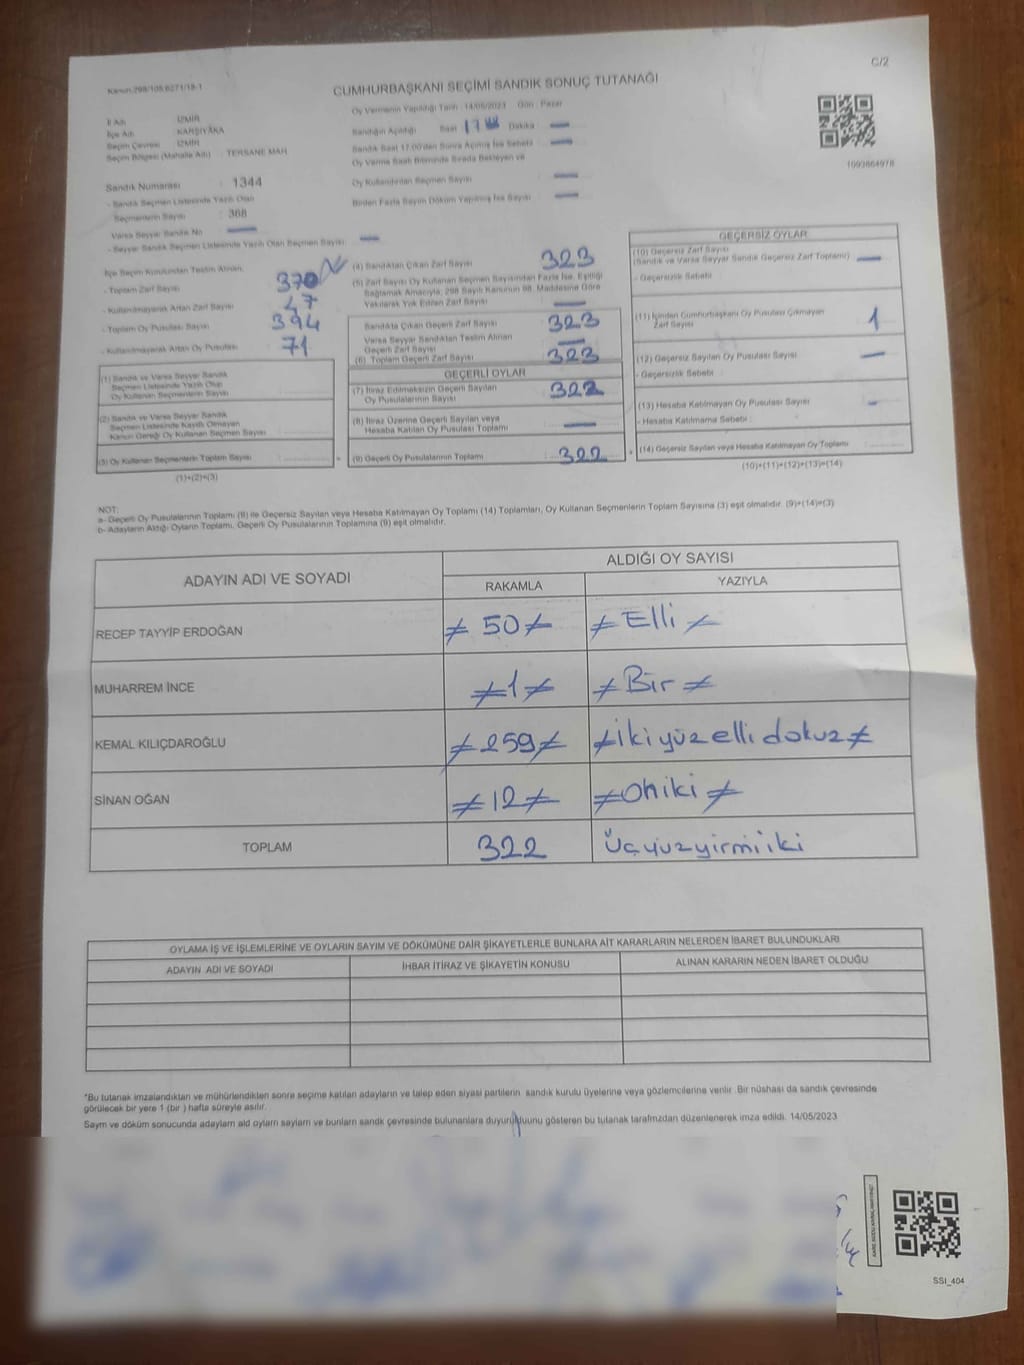 C/2
Kanun:298/105,6271/18-1
CUMHURBAŞKANI SEÇİMİ SANDIK SONUÇ TUTANAĞI
İl Adı : İZMİR
İlçe Adı : KARŞIYAKA
Seçim Çevresi : İZMİR
Seçim Bölgesi (Mahalle Adı) : TERSANE MAH.
Sandık Numarası : 1344
- Sandık Seçmen Listesinde Yazılı Olan
Seçmenlerin Sayısı : 368
Varsa Seyyar Sandık No
- Seyyar Sandık Seçmen Listesinde Yazılı Olan Seçmen Sayısı :
Oy Vermenin Yapıldığı Tarih : 14/05/2023 Gün : Pazar
Sandığın Açıldığı Saat 17 Dakika :
Sandık Saat 17:00'den Sonra Açılmış İse Sebebi :
Oy Verme Saati Bitiminde Sırada Bekleyen ve
Oy Kullandırılan Seçmen Sayısı
Birden Fazla Sayım Döküm Yapılmış İse Sayısı :
1093864978
İlçe Seçim Kurulundan Teslim Alınan;
- Toplam Zarf Sayısı : 370
- Kullanılmayarak Artan Zarf Sayısı : 47
- Toplam Oy Pusulası Sayısı : 394
- Kullanılmayarak Artan Oy Pusulası : 71
(1) Sandık ve Varsa Seyyar Sandık
Seçmen Listesinde Yazılı Olup
Oy Kullanan Seçmenlerin Sayısı
(2) Sandık ve Varsa Seyyar Sandık
Seçmen Listesinde Kayıtlı Olmayan
Kanun Gereği Oy Kullanan Seçmen Sayısı
(3) Oy Kullanan Seçmenlerin Toplam Sayısı
(1)+(2)=(3)
(4) Sandıktan Çıkan Zarf Sayısı : 323
(5) Zarf Sayısı Oy Kullanan Seçmen Sayısından Fazla İse, Eşitliği
Sağlamak Amacıyla, 298 Sayılı Kanunun 98. Maddesine Göre
Yakılarak Yok Edilen Zarf Sayısı
Sandıkta Çıkan Geçerli Zarf Sayısı 323
Varsa Seyyar Sandıktan Teslim Alınan
Geçerli Zarf Sayısı
(6) Toplam Geçerli Zarf Sayısı 323
GEÇERLİ OYLAR
(7) İtiraz Edilmeksizin Geçerli Sayılan
Oy Pusulalarının Sayısı 322
(8) İtiraz Üzerine Geçerli Sayılan veya
Hesaba Katılan Oy Pusulası Toplamı
(9) Geçerli Oy Pusulalarının Toplamı 322
GEÇERSİZ OYLAR
(10) Geçersiz Zarf Sayısı
(Sandık ve Varsa Seyyar Sandık Geçersiz Zarf Toplamı)
- Geçersizlik Sebebi :
(11) İçinden Cumhurbaşkanı Oy Pusulası Çıkmayan
Zarf Sayısı 1
(12) Geçersiz Sayılan Oy Pusulası Sayısı
- Geçersizlik Sebebi :
(13) Hesaba Katılmayan Oy Pusulası Sayısı
- Hesaba Katılmama Sebebi :
(14) Geçersiz Sayılan veya Hesaba Katılmayan Oy Toplamı
(10)+(11)+(12)+(13)=(14)
NOT:
a- Geçerli Oy Pusulalarının Toplamı (9) ile Geçersiz Sayılan veya Hesaba Katılmayan Oy Toplamı (14) Toplamları, Oy Kullanan Seçmenlerin Toplam Sayısına (3) eşit olmalıdır. (9)+(14)=(3)
b- Adayların Aldığı Oyların Toplamı, Geçerli Oy Pusulalarının Toplamına (9) eşit olmalıdır.
ADAYIN ADI VE SOYADI
ALDIĞI OY SAYISI
RAKAMLA YAZIYLA
RECEP TAYYİP ERDOĞAN ≠ 50 ≠ ≠ Elli ≠
MUHARREM İNCE ≠ 1 ≠ ≠ Bir ≠
KEMAL KILIÇDAROĞLU ≠ 259 ≠ ≠ ikiyüzellidokuz ≠
SİNAN OĞAN ≠ 12 ≠ ≠ Oniki ≠
TOPLAM 322 Üçyüzyirmiiki
OYLAMA İŞ VE İŞLEMLERİNE VE OYLARIN SAYIM VE DÖKÜMÜNE DAİR ŞİKAYETLERLE BUNLARA AİT KARARLARIN NELERDEN İBARET BULUNDUKLARI
ADAYIN ADI VE SOYADI İHBAR İTİRAZ VE ŞİKAYETİN KONUSU ALINAN KARARIN NEDEN İBARET OLDUĞU
*Bu tutanak imzalandıktan ve mühürlendikten sonra seçime katılan adayların ve talep eden siyasi partilerin sandık kurulu üyelerine veya gözlemcilerine verilir. Bir nüshası da sandık çevresinde
görülecek bir yere 1 (bir ) hafta süreyle asılır.
Sayım ve döküm sonucunda adayların ald oyların sayıların ve bunların sandık çevresinde bulunanlara duyurulduunu gösteren bu tutanak tarafmzdan düzenlenerek imza edildi. 14/05/2023
SSI_404